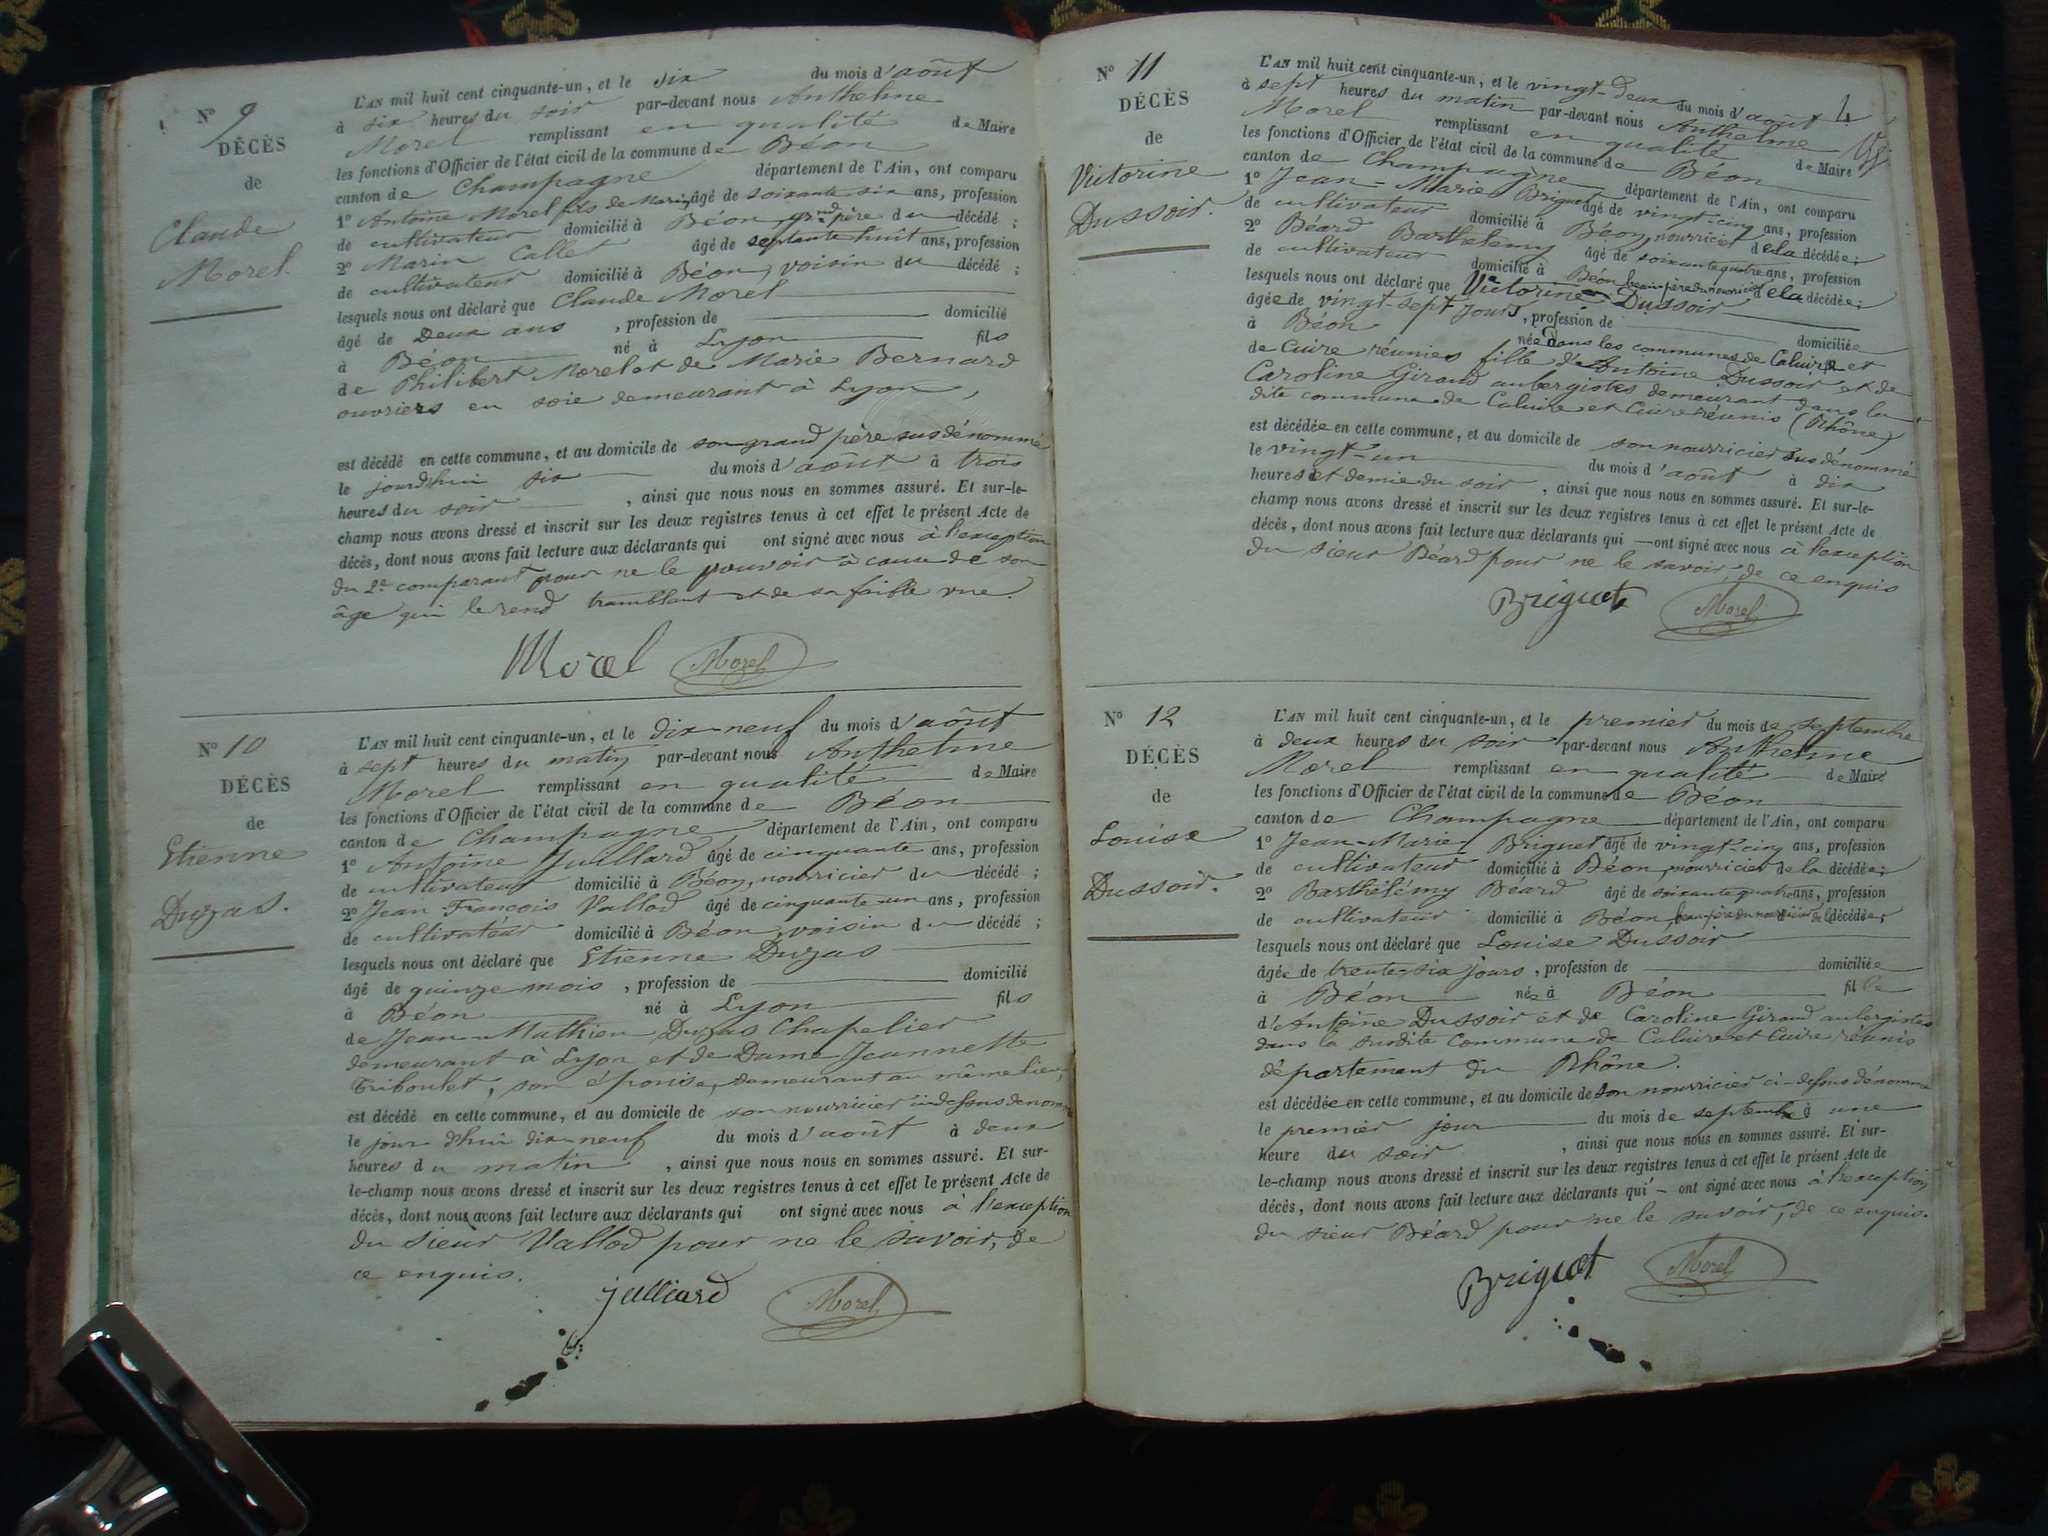 N° 9
DÉCÈS
de
Claude
Morel.
L'AN mil huit cent cinquante-un, et le six du mois d'août
à six heures du soir par-devant nous Anthelme
Morel remplissant en qualité de Maire
les fonctions d'Officier de l'état civil de la commune de Béon
canton de Champagne département de l'Ain, ont comparu
1° Antoine Morel fils de Marin, âgé de soixante six ans, profession
de cultivateur domicilié à Béon, grand père du décédé ;
2° Marin Callet âgé de septante huit ans, profession
de cultivateur domicilié à Béon, voisin du décédé ;
lesquels nous ont déclaré que Claude Morel
âgé de Deux ans , profession de domicilié
à Béon né à Lyon fils
de Philibert Morel et de Marie Bernard
ouvriers en soie demeurant à Lyon,
est décédé en cette commune, et au domicile de son grand père susdénommé
le jourd'hui six du mois d'août à trois
heures du soir , ainsi que nous nous en sommes assuré. Et sur-le-
champ nous avons dressé et inscrit sur les deux registres tenus à cet effet le présent Acte de
décès, dont nous avons fait lecture aux déclarants qui ont signé avec nous à l'exception
du 2e comparant pour ne le pouvoir à cause de son
âge qui le rend tramblant et de sa faible vue.
Morel Morel
N° 10
DÉCÈS
de
Etienne
Duzas.
L'AN mil huit cent cinquante-un, et le dix-neuf du mois d'août
à sept heures du matin par-devant nous Anthelme
Morel remplissant en qualité de Maire
les fonctions d'Officier de l'état civil de la commune de Béon
canton de Champagne département de l'Ain, ont comparu
1° Antoine Juillard âgé de cinquante ans, profession
de cultivateur domicilié à Béon, nourricier du décédé ;
2° Jean François Vallod âgé de cinquante-un ans, profession
de cultivateur domicilié à Béon, voisin du décédé ;
lesquels nous ont déclaré que Etienne Duzas
âgé de quinze mois , profession de domicilié
à Béon né à Lyon fils
de Jean-Mathieu Duzas Chapelier
demeurant à Lyon et de Dame Jeannette
Triboulet, son épouse, demeurant au même lieu,
est décédé en cette commune, et au domicile de son nourricier ci-dessus dénommé
le jour d'hui dix-neuf du mois d'août à deux
heures du matin , ainsi que nous nous en sommes assuré. Et sur-
le-champ nous avons dressé et inscrit sur les deux registres tenus à cet effet le présent Acte de
décès, dont nous avons fait lecture aux déclarants qui ont signé avec nous à l'exception
du sieur Vallod pour ne le savoir, de
ce enquis.
Julliard Morel
4
N° 11
DÉCÈS
de
Victorine
Dussoir.
L'AN mil huit cent cinquante-un, et le vingt-Deux du mois d'août
à sept heures du matin par-devant nous Anthelme
Morel remplissant en qualité de Maire
les fonctions d'Officier de l'état civil de la commune de Béon
canton de Champagne département de l'Ain, ont comparu
1° Jean-Marie Briguet âgé de vingt-cinq ans, profession
de cultivateur domicilié à Béon, nourricier de la décédée ;
2° Béard Barthélemy âgé de soixante quatre ans, profession
de cultivateur domicilié à Béon, beau-père du nourricier de la décédée ;
lesquels nous ont déclaré que Victorine Dussoir
âgée de vingt-sept jours , profession de domiciliée
à Béon née dans les communes de Caluire et
de Cuire réunies fille d'Antoine Dussoir et de
Caroline Giraud aubergistes demeurant dans la
dite commune de Caluire et Cuire réunis (Rhône)
est décédée en cette commune, et au domicile de son nourricier susdénommé
le vingt-un du mois d'août à dix
heures et demie du soir , ainsi que nous nous en sommes assuré. Et sur-le-
champ nous avons dressé et inscrit sur les deux registres tenus à cet effet le présent Acte de
décès, dont nous avons fait lecture aux déclarants qui ont signé avec nous à l'exception
du sieur Béard pour ne le savoir, de ce enquis
Briguet Morel
N° 12
DÉCÈS
de
Louise
Dussoir.
L'AN mil huit cent cinquante-un, et le premier du mois de septembre
à deux heures du soir par-devant nous Anthelme
Morel remplissant en qualité de Maire
les fonctions d'Officier de l'état civil de la commune de Béon
canton de Champagne département de l'Ain, ont comparu
1° Jean-Marie Briguet âgé de vingt-cinq ans, profession
de cultivateur domicilié à Béon, nourricier de la décédée ;
2° Barthélémy Béard âgé de soixante quatre ans, profession
de cultivateur domicilié à Béon, beau-père du nourricier de la décédée ;
lesquels nous ont déclaré que Louise Dussoir
âgée de trente-six jours , profession de domiciliée
à Béon née à Béon fille
d'Antoine Dussoir et de Caroline Giraud aubergistes
dans la susdite commune de Caluire et Cuire réunis
département du Rhône.
est décédée en cette commune, et au domicile de son nourricier ci-dessus dénommé
le premier jour du mois de septembre à une
heure du soir , ainsi que nous nous en sommes assuré. Et sur-
le-champ nous avons dressé et inscrit sur les deux registres tenus à cet effet le présent Acte de
décès, dont nous avons fait lecture aux déclarants qui ont signé avec nous à l'exception
du sieur Béard pour ne le savoir, de ce enquis.
Briguet Morel